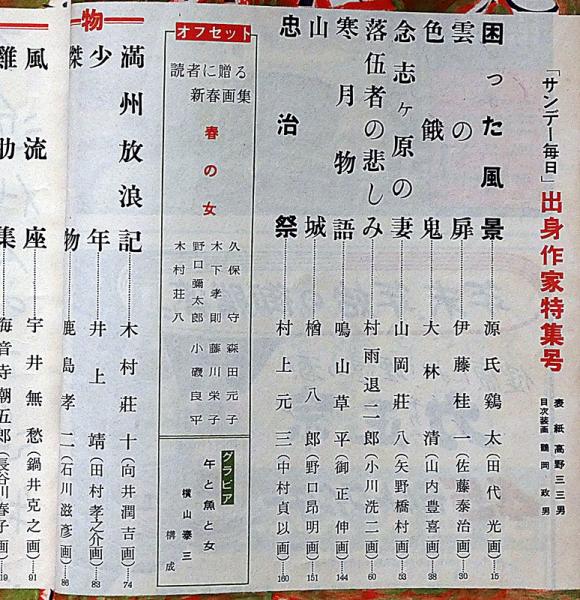 「サンデー毎日」出身作家特集号
表紙 高野三三男
目次装画 鶴岡政男
困った風景……源氏鶏太(田代光画)…15
雲の扉……伊藤桂一(佐藤泰治画)…30
色餓鬼……大林清(山内豊喜画)…38
念志ヶ原の妻……山岡荘八(矢野橋村画)…53
落伍者の悲しみ……村雨退二郎(小川洗二画)…60
寒月物語……鳴山草平(御正伸画)…144
山城……楢八郎(野口昂明画)…151
忠治祭……村上元三(中村貞以画)…160
オフセット
読者に贈る
新春画集
春の女
久保守 森田元子
木下孝則 藤川栄子
野口彌太郎 小磯良平
木村荘八
グラビア
牛と魚と女
横山泰三
構成
物
満州放浪記……木村荘十(向井潤吉画)…74
少年……井上靖(田村孝之介画)…83
傑物……鹿島孝二(石川滋彦画)…86
風流座……宇井無愁(鍋井克之画)…91
雞助集……海音寺潮五郎(長谷川春子画)…19